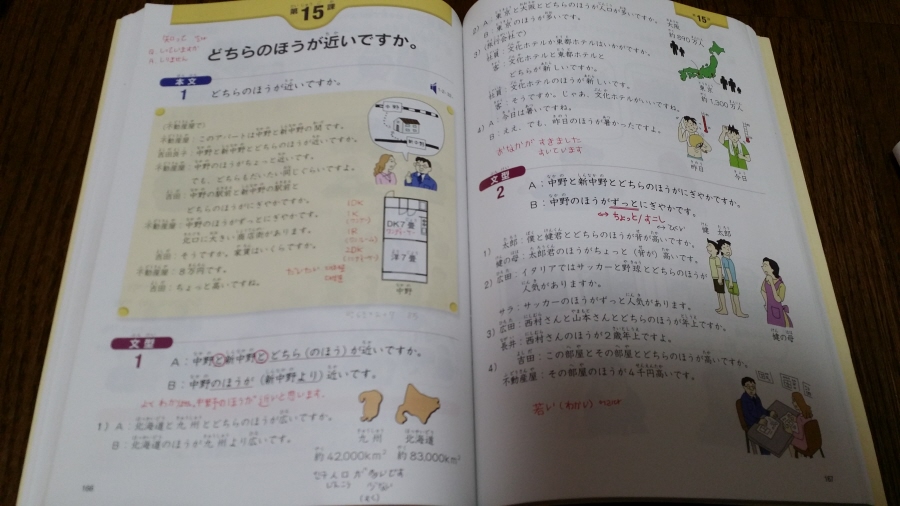 第15課
どちらのほうが近いですか。
本文
1 どちらのほうが近いですか。
(不動産屋で)
不動産屋：このアパートは中野と新中野の間です。
吉田良子：中野と新中野とどちらのほうが近いですか。
不動産屋：中野のほうがちょっと近いです。
でも、どちらもだいたい同じぐらいですよ。
吉田：中野の駅前と新中野の駅前と
どちらのほうがにぎやかですか。
不動産屋：中野のほうがずっとにぎやかです。
北口に大きい商店街があります。
吉田：そうですか。家賃はいくらですか。
不動産屋：8万円です。
吉田：ちょっと高いですね。
中野
新中野
DK7畳
洋7畳
中野
文型
1 A：中野と新中野とどちら(のほう)が近いですか。
B：中野のほうが(新中野より)近いです。
中野のほうが近いと思います。
1) A：北海道と九州とどちらのほうが広いですか。
B：北海道のほうが九州より広いです。
九州 北海道
約42,000km² 約83,000km²
166
第15課
2) A：東京と大阪とどちらのほうが人口が多いですか。
B：東京のほうが多いです。
大阪
約890万人
東京
約1,300万人
3) (旅行会社で)
社員：文化ホテルか東都ホテルはいかがですか。
客：文化ホテルと東都ホテルと
どちらが新しいですか。
社員：文化ホテルのほうが新しいです。
客：そうですか。じゃあ、文化ホテルがいいですね。
4) A：今日は暑いですね。
B：ええ。でも、昨日のほうが暑かったですよ。
昨日 今日
おなかが すきました
すいています
文型
2 A：中野と新中野とどちらのほうがにぎやかですか。
B：中野のほうがずっとにぎやかです。
↔ ちょっと/すこし
健 太郎
1) 太郎：僕と健君とどちらのほうが背が高いですか。
健の母：太郎君のほうがちょっと(背が)高いです。
2) 広田：イタリアではサッカーと野球とどちらのほうが
人気がありますか。
サラ：サッカーのほうがずっと人気があります。
健の母
3) 広田：西村さんと山本さんとどちらのほうが年上ですか。
長井：西村さんのほうが2歳年上ですよ。
4) 吉田：この部屋とその部屋とどちらのほうが高いですか。
不動産屋：その部屋のほうが4千円高いです。
若い(わかい)
167